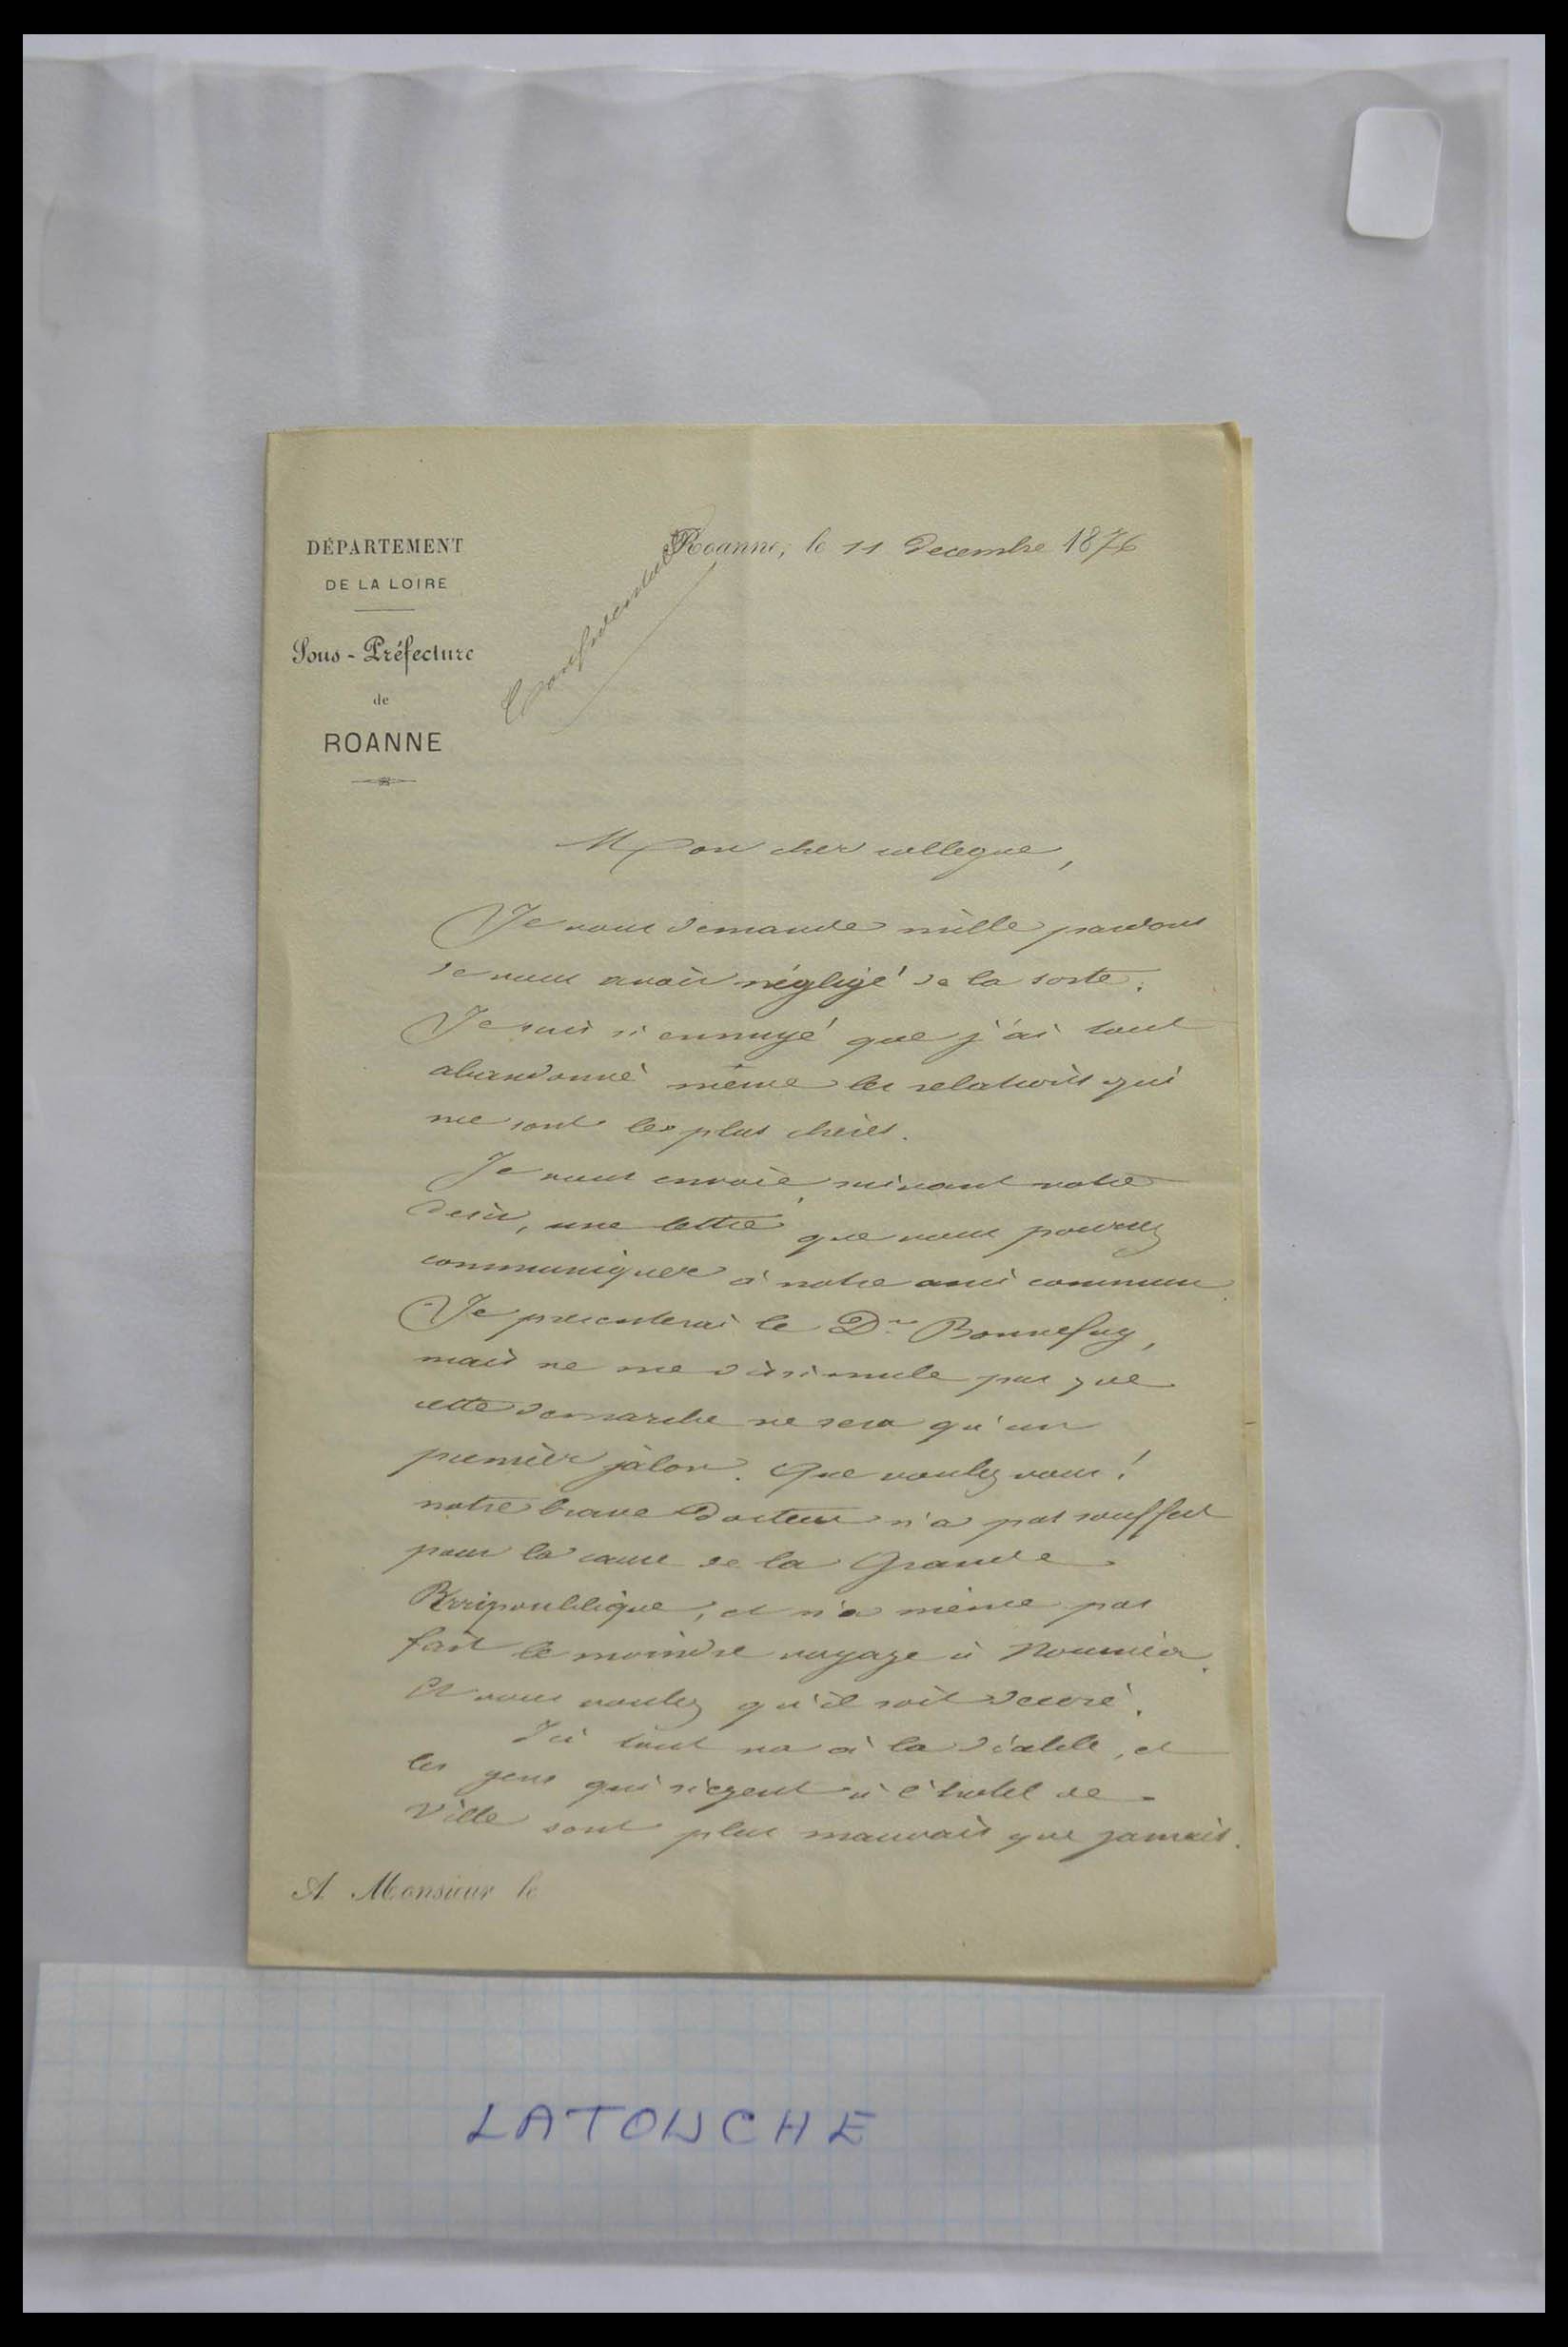 DÉPARTEMENT
DE LA LOIRE
Sous-Préfecture
de
ROANNE
Confidentielle
Roanne, le 11 Decembre 1876
Mon cher collegue,
Je vous demande mille pardons
de vous avoir négligé de la sorte.
Je suis si ennuyé que j'ai tout
abandonné même les relations qui
me sont les plus chères.
Je vous envoie, suivant votre
desir, une lettre que vous pourrez
communiquer à notre ami commun.
Je presenterai le Dr Bonnefoy,
mais ne me dissimule pas que
cette demarche ne sera qu'un
premier jalon. Que voulez vous!
notre brave Docteur n'a pas souffert
pour la cause de la Grande
Rrripoublique, et n'a même pas
fait le moindre voyage à Nouméa.
Et vous voulez qu'il soit decoré.
Ici tout va à la diable, et
les gens qui siegent à l'hotel de
Ville sont plus mauvais que jamais.
A Monsieur le
LATOUCHE